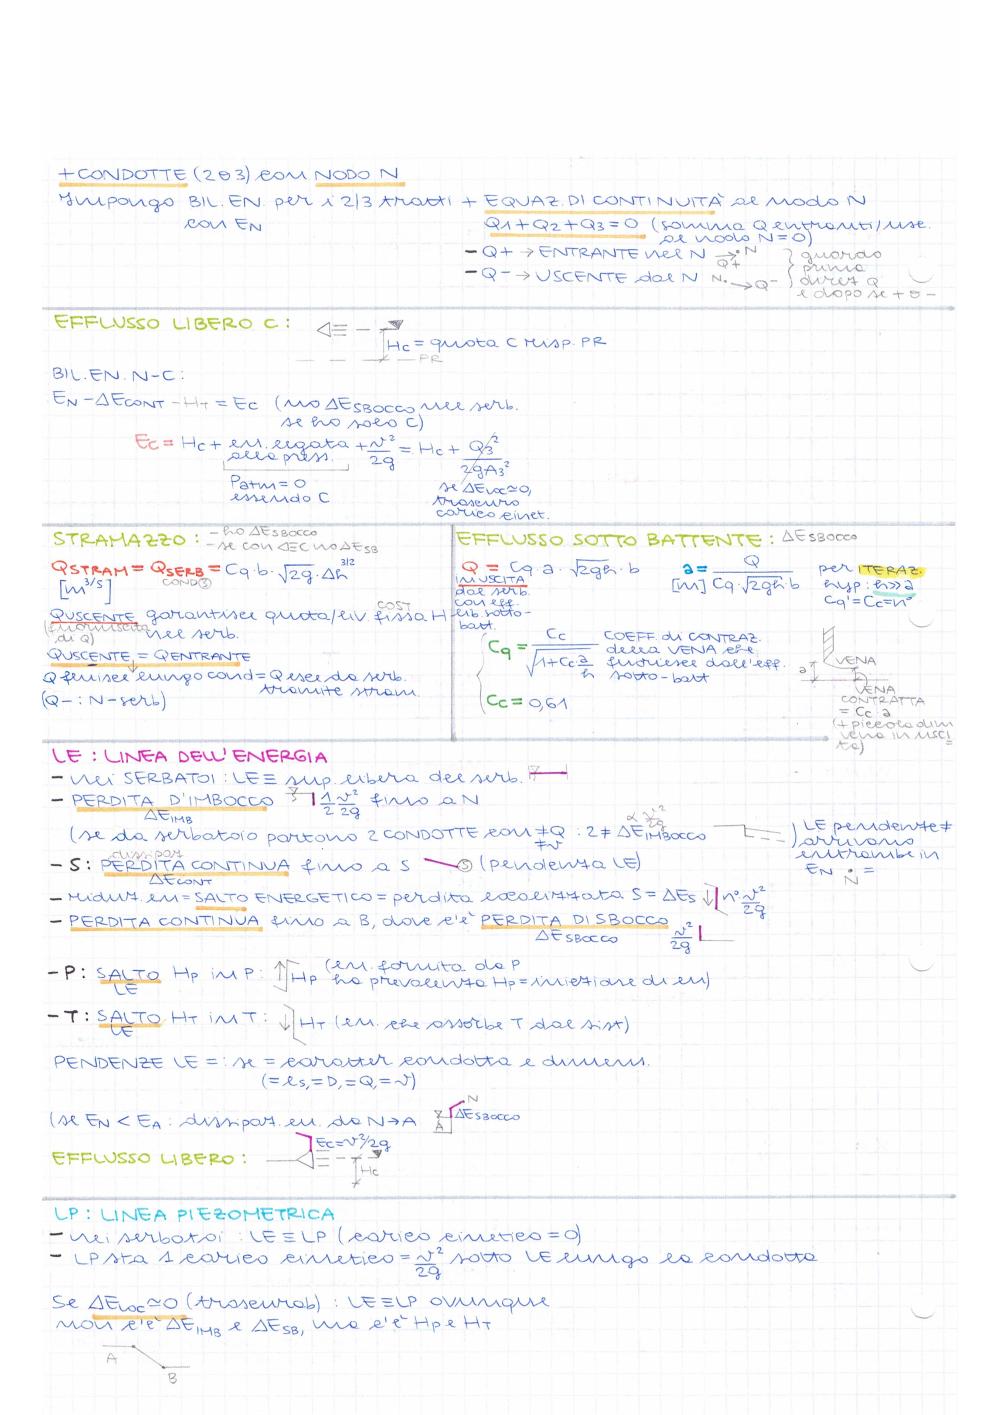 + CONDOTTE (2 o 3) con NODO N
Impongo BIL. EN. per i 2/3 tratti + EQUAZ. DI CONTINUITÀ al nodo N
con EN
Q1 + Q2 + Q3 = 0 (somma Q entranti/usc. al nodo N = 0)
- Q+ → ENTRANTE nel N → N Q+
- Q- → USCENTE dal N N → Q-
guardo prima direz Q e dopo se + o -
EFFLUSSO LIBERO C:
Hc = quota C risp. PR
PR
BIL. EN. N-C:
EN - ΔECONT - HT = EC (no ΔESBOCCO nel serb. se ho solo C)
EC = Hc + en. legata alla press. + v²/2g = Hc + Q3²/2gA3²
Patm = 0 essendo C
se ΔEloc ≃ 0, trascuro carico cinet.
STRAMAZZO: - ho ΔESBOCCO
- se con C no ΔESB
QSTRAM = QSERB = Cq·b·√2g·Δh^3/2
[m³/s] COND③
QUSCENTE garantisce quota/liv. fissa H COST
(fuoriuscita di Q) nel serb.
QUSCENTE = QENTRANTE
Q fluisce lungo cond = Q esce da serb. tramite stram.
(Q- : N-serb)
EFFLUSSO SOTTO BATTENTE: ΔESBOCCO
Q = Cq·a·√2gh·b
IN USCITA dal serb. con eff. lib sotto-batt.
a = Q / Cq·√2gh·b
[m]
per ITERAZ.
hyp: h>>a
Cq' = Cc = n°
Cq = Cc / √1+Cc a/h
COEFF. di CONTRAZ. della VENA che fuoriesce dall'eff. sotto-batt
Cc = 0,61
a
VENA
VENA CONTRATTA
= Cc·a
(+ piccola dim vena in uscita)
LE: LINEA DELL'ENERGIA
- nei SERBATOI: LE ≡ sup. libera del serb.
- PERDITA D'IMBOCCO 1/2 v²/2g fino a N
ΔEIMB
(se da serbatoio partono 2 CONDOTTE con ≠Q : 2 ≠ ΔEIMBOCCO
≠v
α v²/2g
) LE pendenze ≠
arrivano entrambe in
EN N =
- S: PERDITA CONTINUA fino a S S (pendenza LE)
dissipaz
ΔECONT
- riduz. en = SALTO ENERGETICO = perdita localizzata S = ΔES ↓ n° v²/2g
- PERDITA CONTINUA fino a B, dove c'è PERDITA DI SBOCCO v²/2g
ΔESBOCCO
- P: SALTO Hp in P: ↑ Hp (en. fornita da P
LE ha prevalenza Hp = iniezione di en)
- T: SALTO HT in T: ↓ HT (en. che assorbe T dal sist)
LE
PENDENZE LE = : se = caratter condotta e dimens.
(= ls, = D, = Q, = v)
(se EN < EA : dissipaz. en. da N→A N A ΔESBOCCO
EC = v²/2g
EFFLUSSO LIBERO: Hc
LP: LINEA PIEZOMETRICA
- nei serbatoi: LE ≡ LP (carico cinetico = 0)
- LP sta 1 carico cinetico = v²/2g sotto LE lungo la condotta
Se ΔEloc ≃ 0 (trascurab) : LE ≡ LP ovunque
non c'è ΔEIMB e ΔESB, ma c'è Hp e HT
A
B